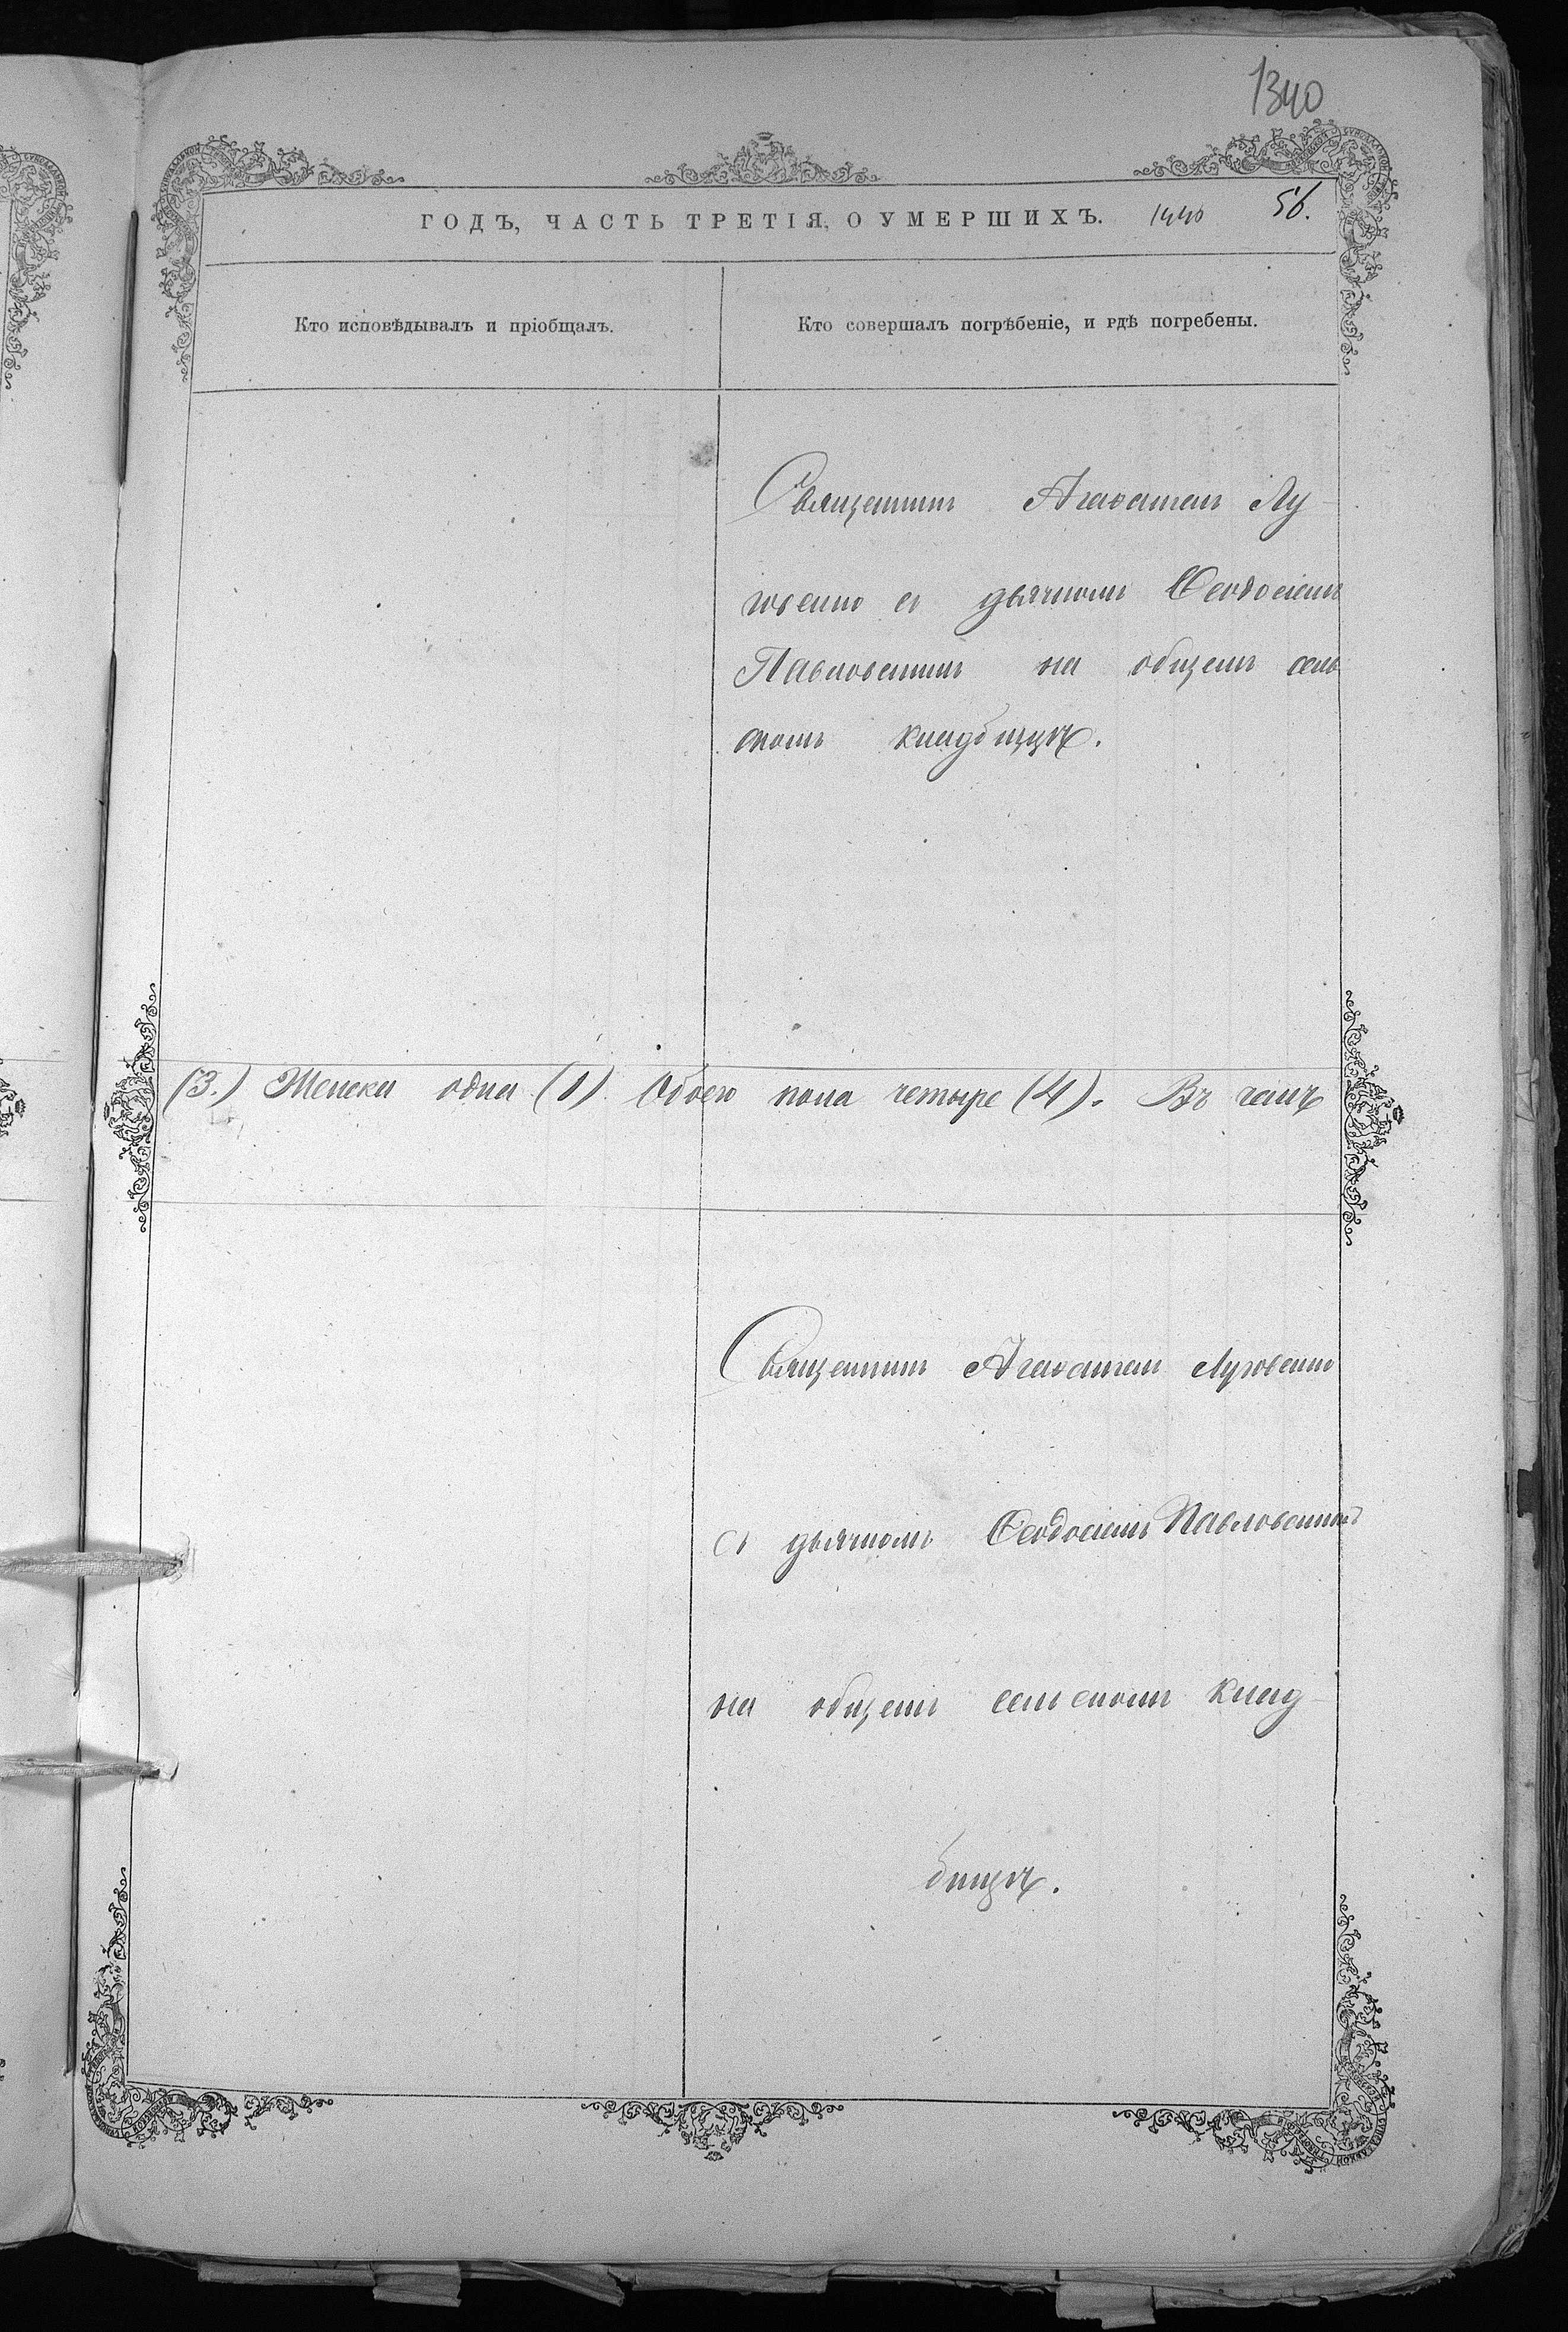 1340
ГОДЪ, ЧАСТЬ ТРЕТІЯ, О УМЕРШИХЪ. 1440 56.
Кто исповѣдывалъ и пріобщалъ.
Кто совершалъ погрѣбеніе, и гдѣ погребены.
Священникъ Агаѳангелъ Лу-
говскій съ дьячкомъ Ѳеодосіемъ
Павловскимъ на общемъ сель
скомъ кладбищѣ.
(3.) Женска одна (1). Обоего пола четыре (4).
Священникъ Агаѳангелъ Луговскій
съ дьячкомъ Ѳеодосіемъ Павловскимъ
на общемъ сельскомъ клад-
бищѣ.